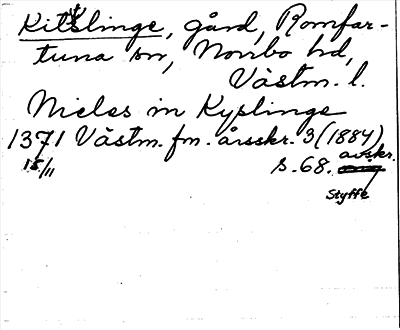 Kittslinge, gård, Romfar-
tuna sn, Norrbo hd,
Västm. l.
Nielss in Kyplinge
1371 Västm. fm. årsskr. 3 (1884)
15/11 s. 68. avskr.
Styffe